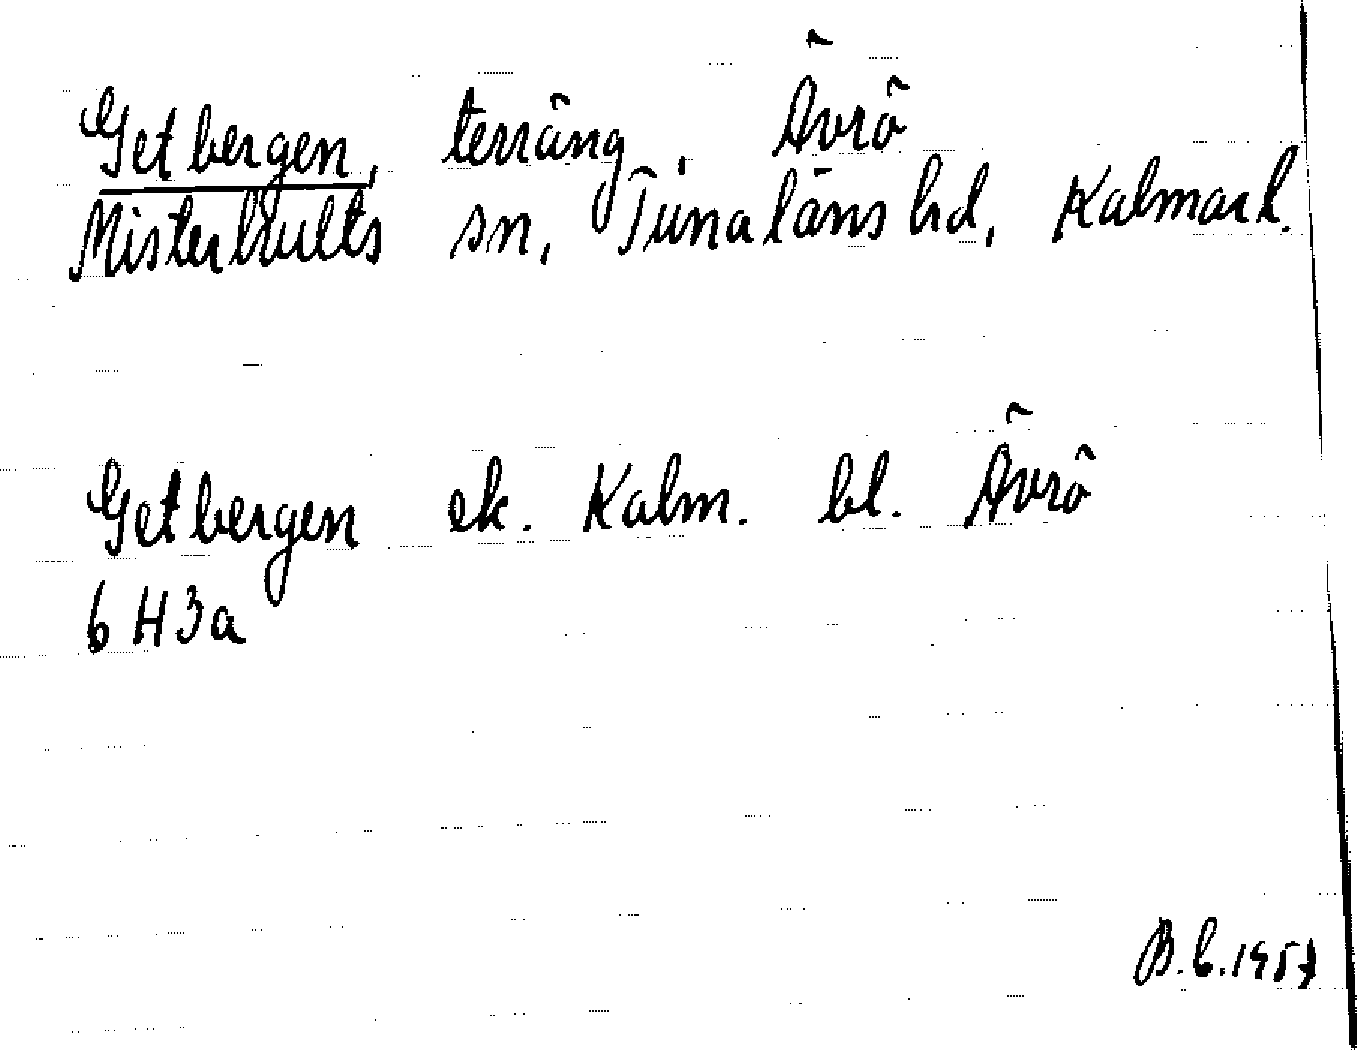 Getbergen, terräng, Ävrö
Misterhults sn, Tunaläns hd, Kalmar l.
Getbergen ek. Kalm. bl. Ävrö
6 H3a
B.C. 1957